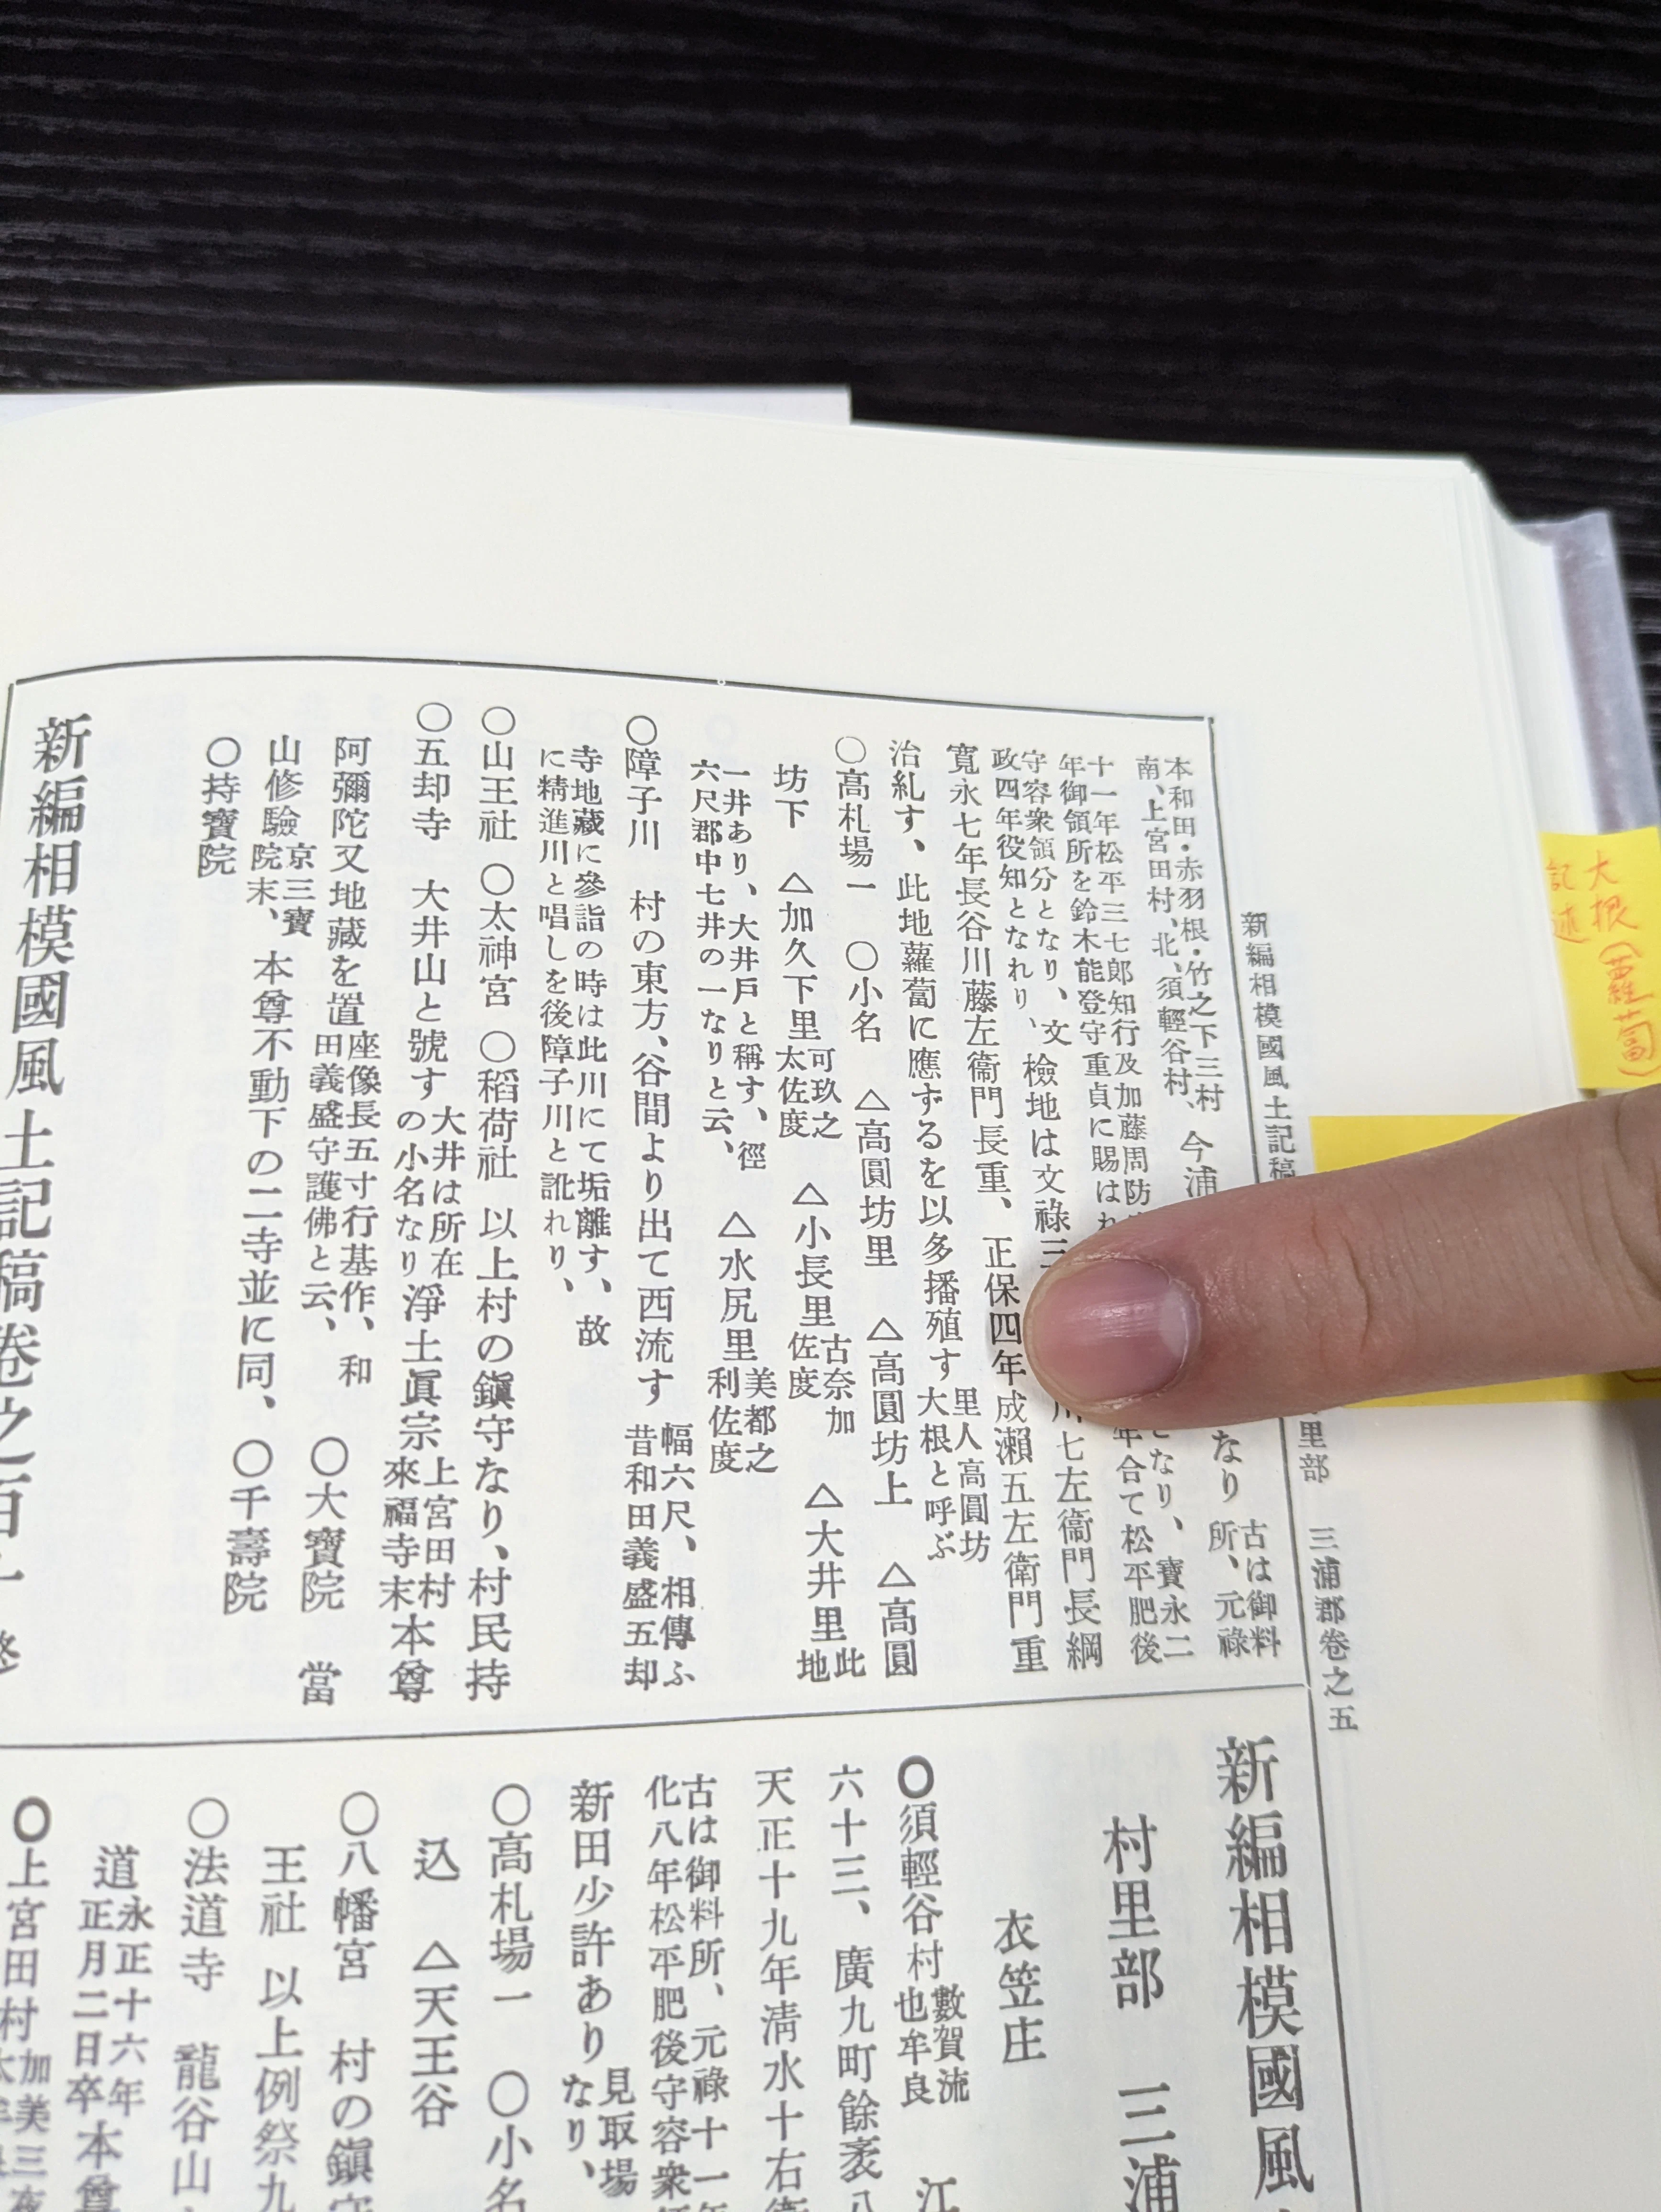 大根(蘿蔔)
記述
新編相模國風土記稿
里部 三浦郡卷之五
本和田・赤羽根・竹之下三村
南、上宮田村、北、須輕谷村、
今浦
なり
古は御料
所、元祿
十一年松平三七郎知行及加藤周防
年御領所を鈴木能登守重貞に賜は
となり、寶永二
年合て松平肥後
守容衆領分となり、文
政四年役知となれり、
檢地は文祿三
川七左衞門長綱
寬永七年長谷川藤左衞門長重、正保四年成瀨五左衞門重
治糺す、此地蘿蔔に應ずるを以多播殖す
里人高圓坊
大根と呼ぶ
〇高札場一 〇小名 △高圓坊里 △高圓坊上 △高圓
坊下 △加久下里
可玖之
太佐度
△小長里
古奈加
佐度
△大井里
此
地
一井あり、大井戶と稱す、徑
六尺郡中七井の一なりと云、
△水尻里
美都之
利佐度
〇障子川 村の東方、谷間より出て西流す
幅六尺、相傳ふ
昔和田義盛五却
寺地藏に參詣の時は此川にて垢離す、故
に精進川と唱しを後障子川と訛れり、
〇山王社 〇太神宮 〇稻荷社 以上村の鎭守なり、村民持
〇五却寺 大井山と號す
大井は所在
の小名なり
淨土眞宗
上宮田村
來福寺末
本尊
阿彌陀又地藏を置
座像長五寸行基作、和
田義盛守護佛と云、
〇大寶院 當
山修驗
京三寶
院末、
本尊不動下の二寺並に同、〇千壽院
〇持寶院
新編相模國風土記稿卷之百十 終
新編相模國風
村里部 三浦
衣笠庄
〇須輕谷村
數賀流
也牟良
江
六十三、廣九町餘袤八
天正十九年淸水十右衞
古は御料所、元祿十一年
化八年松平肥後守容衆
新田少許あり
見取場
なり、
〇高札場一 〇小名
込 △天王谷
〇八幡宮 村の鎭守
王社 以上例祭九
〇法道寺 龍谷山
道
永正十六年
正月二日卒
本尊
〇上宮田村
加美三夜